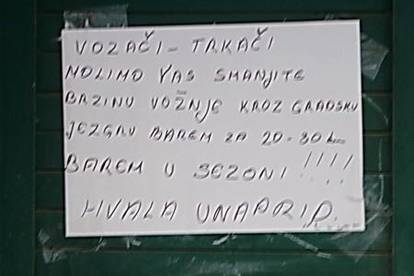 VOZAČI - TRKAČI
MOLIMO VAS SMANJITE
BRZINU VOŽNJE KROZ GRADSKU
JEZGRU BAREM ZA 20-30 km
BAREM U SEZONI !!!!
HVALA UNAPRID.